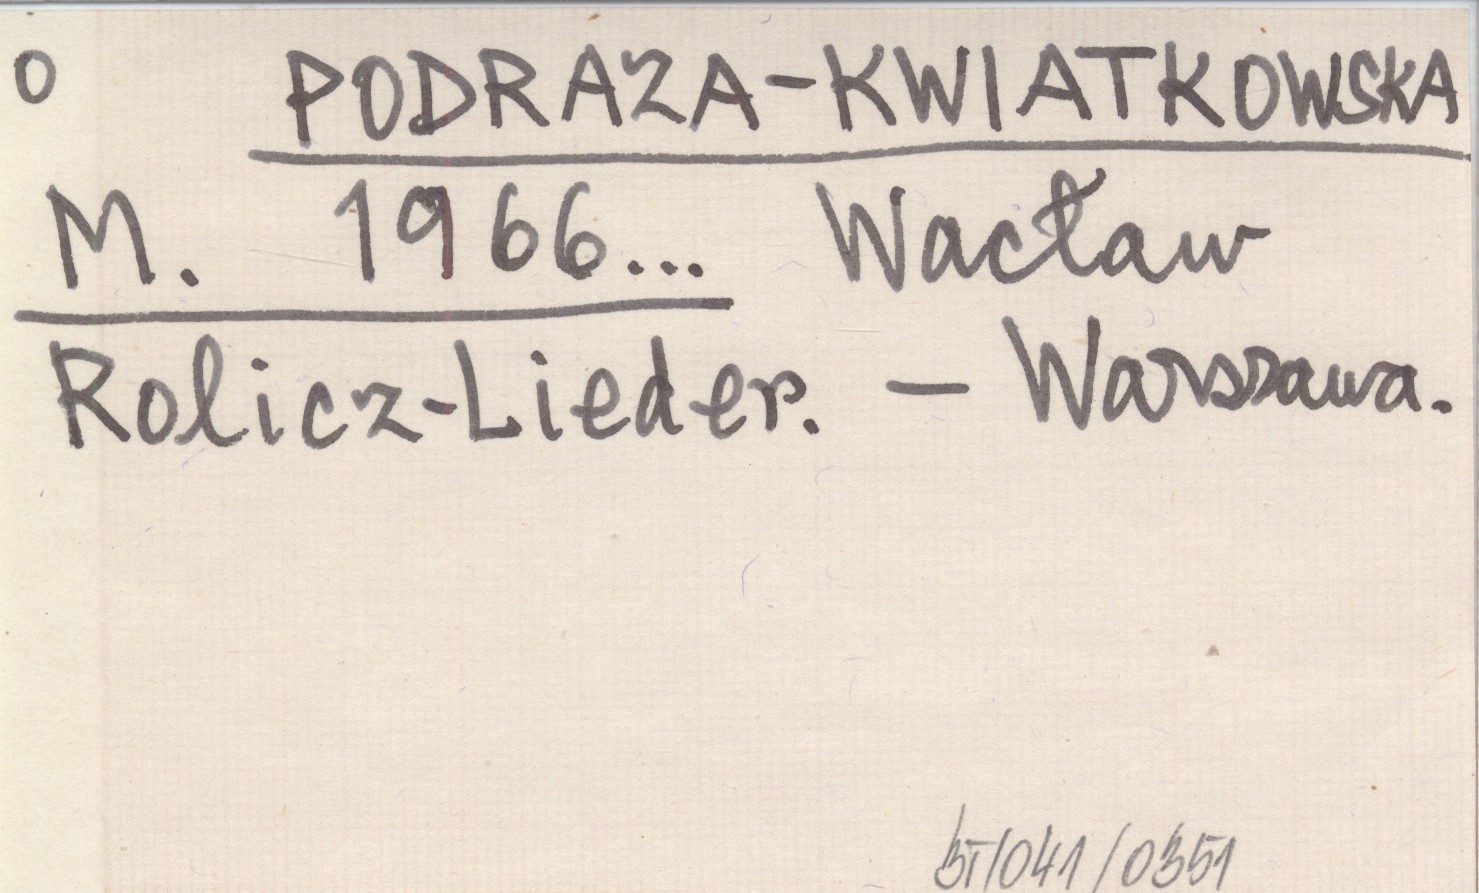 O PODRAZA-KWIATKOWSKA
M. 1966... Wacław
Rolicz-Lieder. — Warszawa.
BT/041/0351